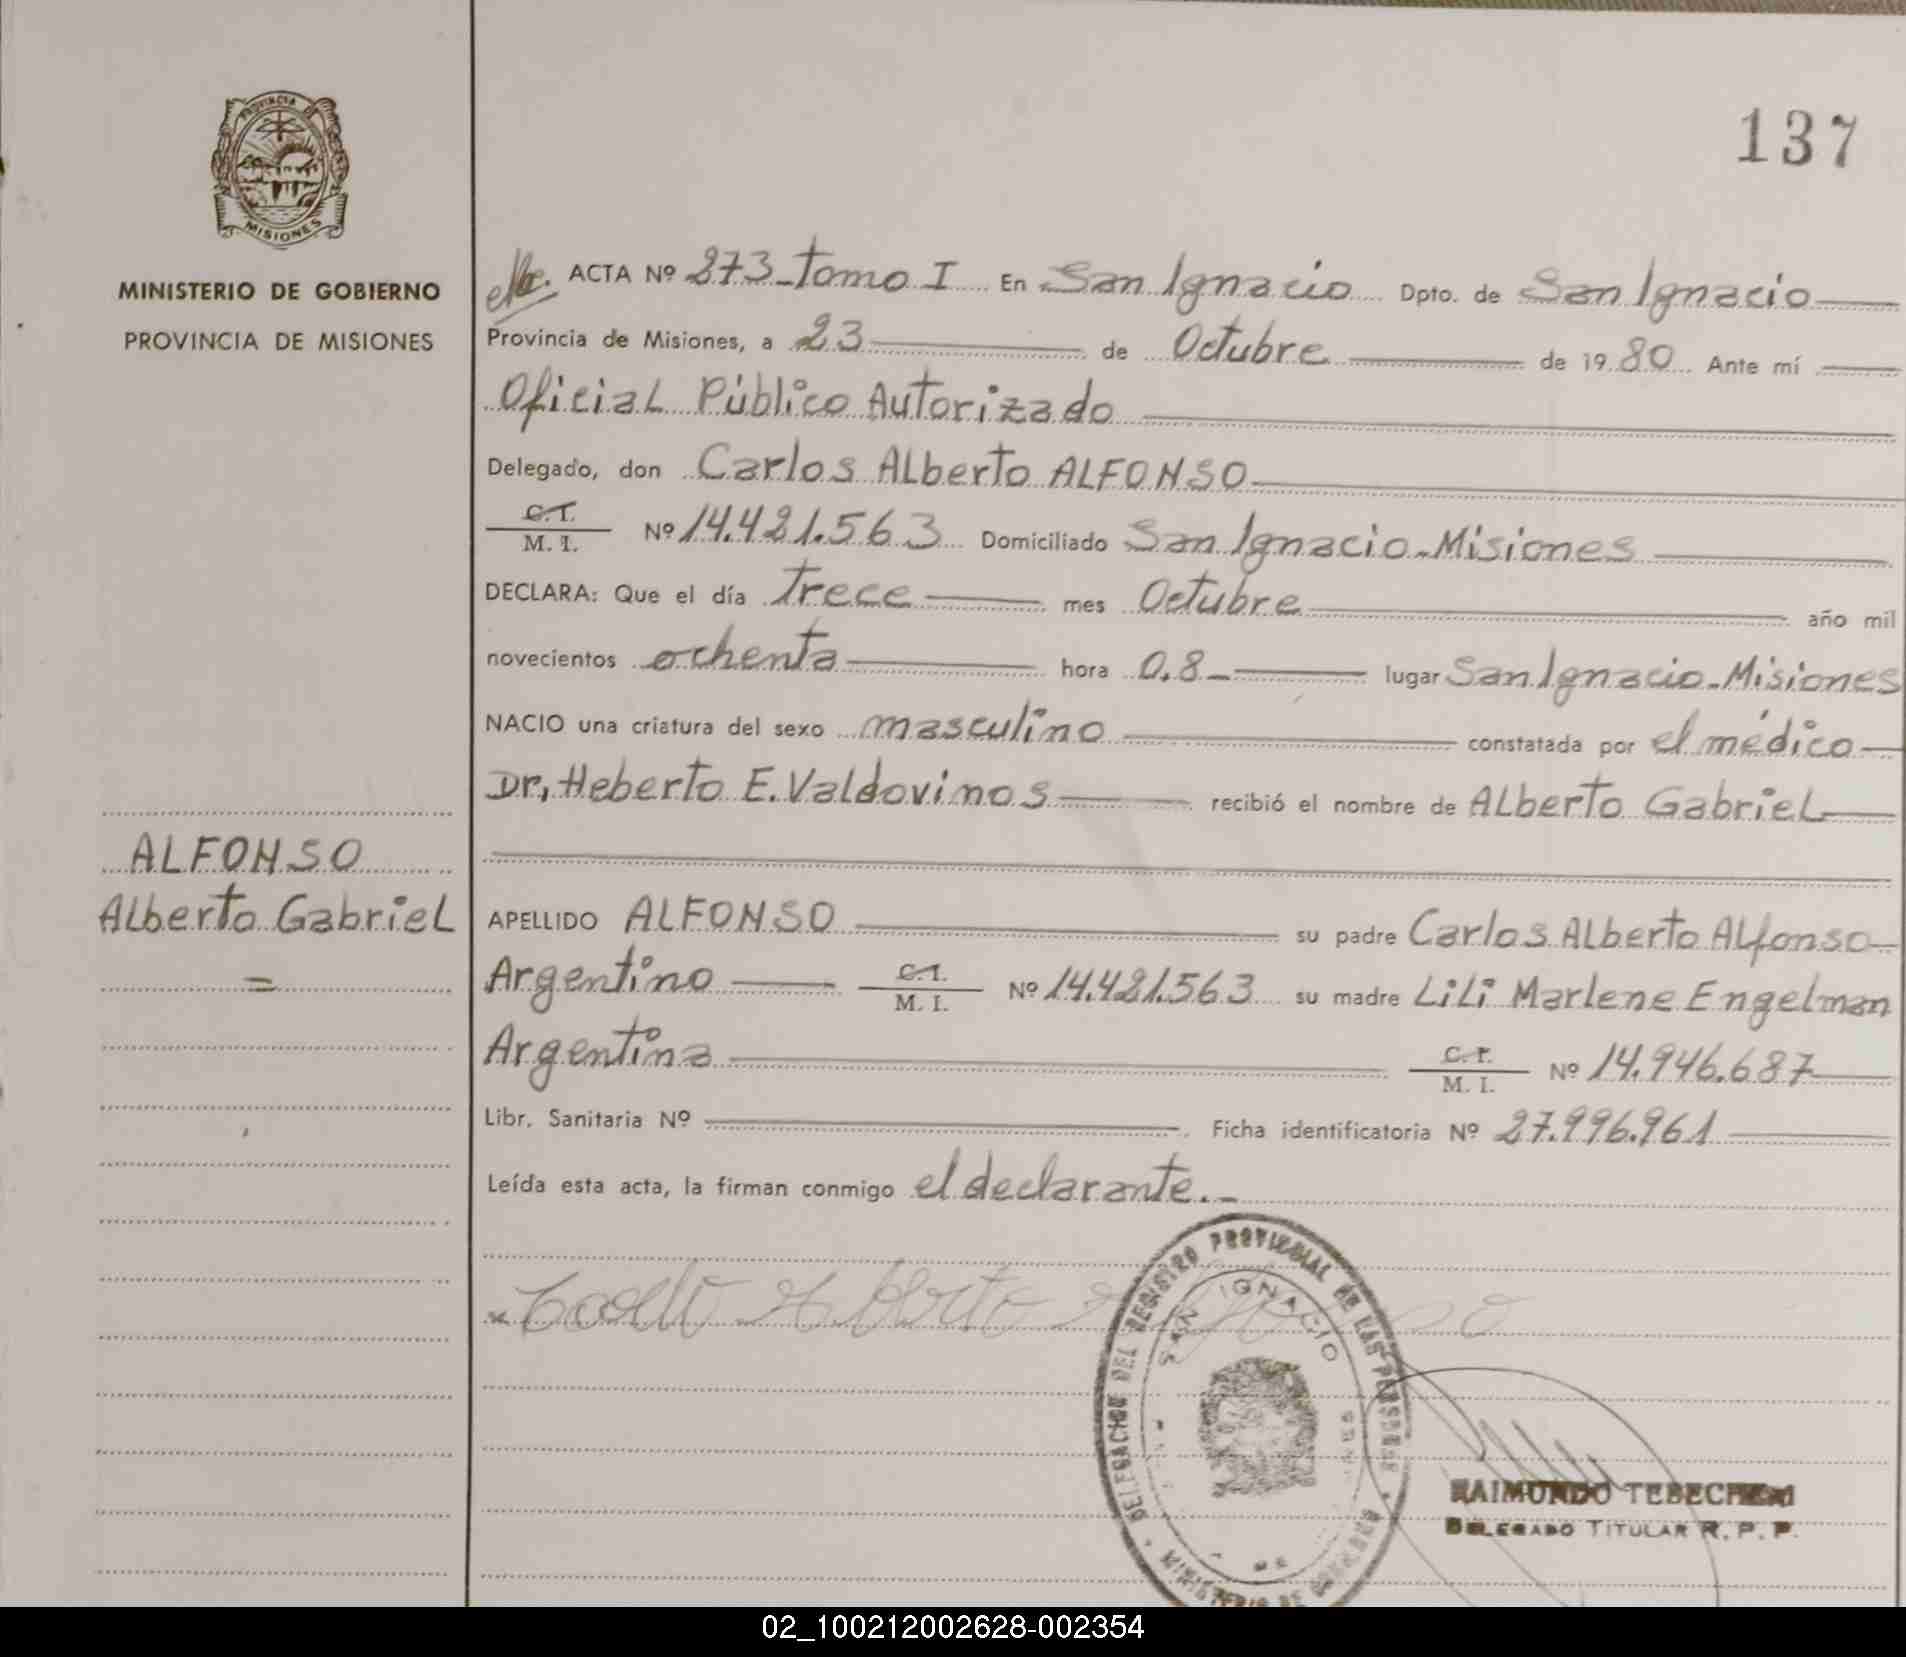 PROVINCIA DE
MISIONES
MINISTERIO DE GOBIERNO
PROVINCIA DE MISIONES
ALFONSO
Alberto Gabriel
=
137
ACTA Nº 273 - Tomo I En San Ignacio Dpto. de San Ignacio
Provincia de Misiones, a 23 de Octubre de 1980 Ante mí
Oficial Público Autorizado
Delegado, don Carlos Alberto ALFONSO
C.I.
M. I. Nº 14.421.563 Domiciliado San Ignacio - Misiones
DECLARA: Que el día Trece mes Octubre año mil
novecientos ochenta hora 0.8 - lugar San Ignacio - Misiones
NACIO una criatura del sexo masculino constatada por el médico
Dr. Heberto E. Valdovinos recibió el nombre de Alberto Gabriel
APELLIDO ALFONSO su padre Carlos Alberto Alfonso
Argentino C.I. M. I. Nº 14.421.563 su madre Lili Marlene Engelman
Argentina C.I. M. I. Nº 14.946.687
Libr. Sanitaria Nº Ficha identificatoria Nº 27.996.961
Leída esta acta, la firman conmigo el declarante.-
Alberto
DELEGACION DEL REGISTRO PROVINCIAL DE LAS PERSONAS
SAN IGNACIO
MINISTERIO DE GOBIERNO
RAIMUNDO
DELEGADO TITULAR R. P. P.
02_100212002628-002354